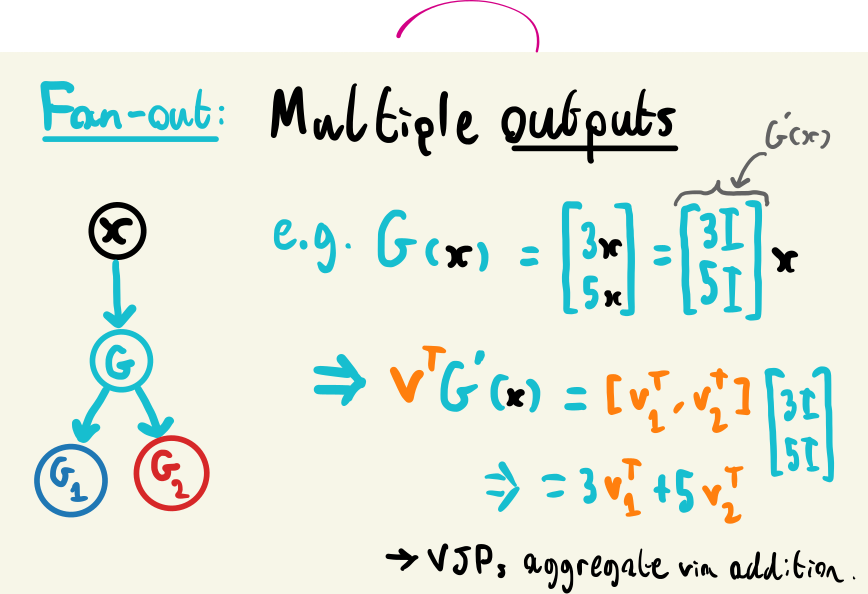 Fan-out: Multiple outputs
G'(x)
e.g. G(x) = [3x 5x] = [3I 5I] x
x
G
G1 G2
⇒ vᵀG'(x) = [v₁ᵀ, v₂ᵀ] [3I 5I]
⇒ = 3v₁ᵀ + 5v₂ᵀ
→ VJPs aggregate via addition.